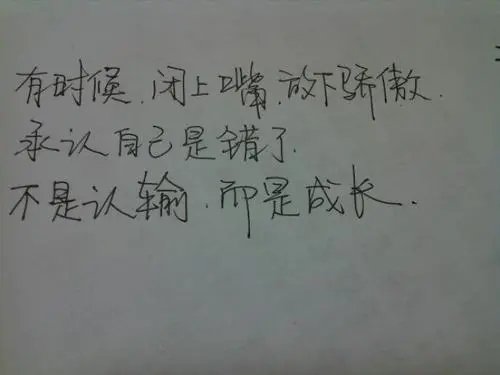 有时候.闭上嘴.放下骄傲.
承认自己是错了.
不是认输.而是成长.